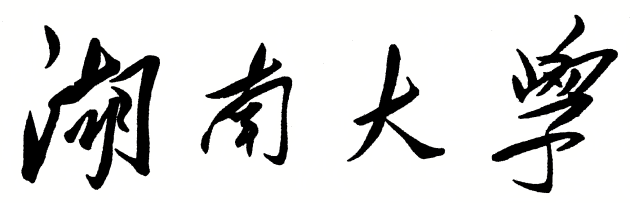 湖南大學